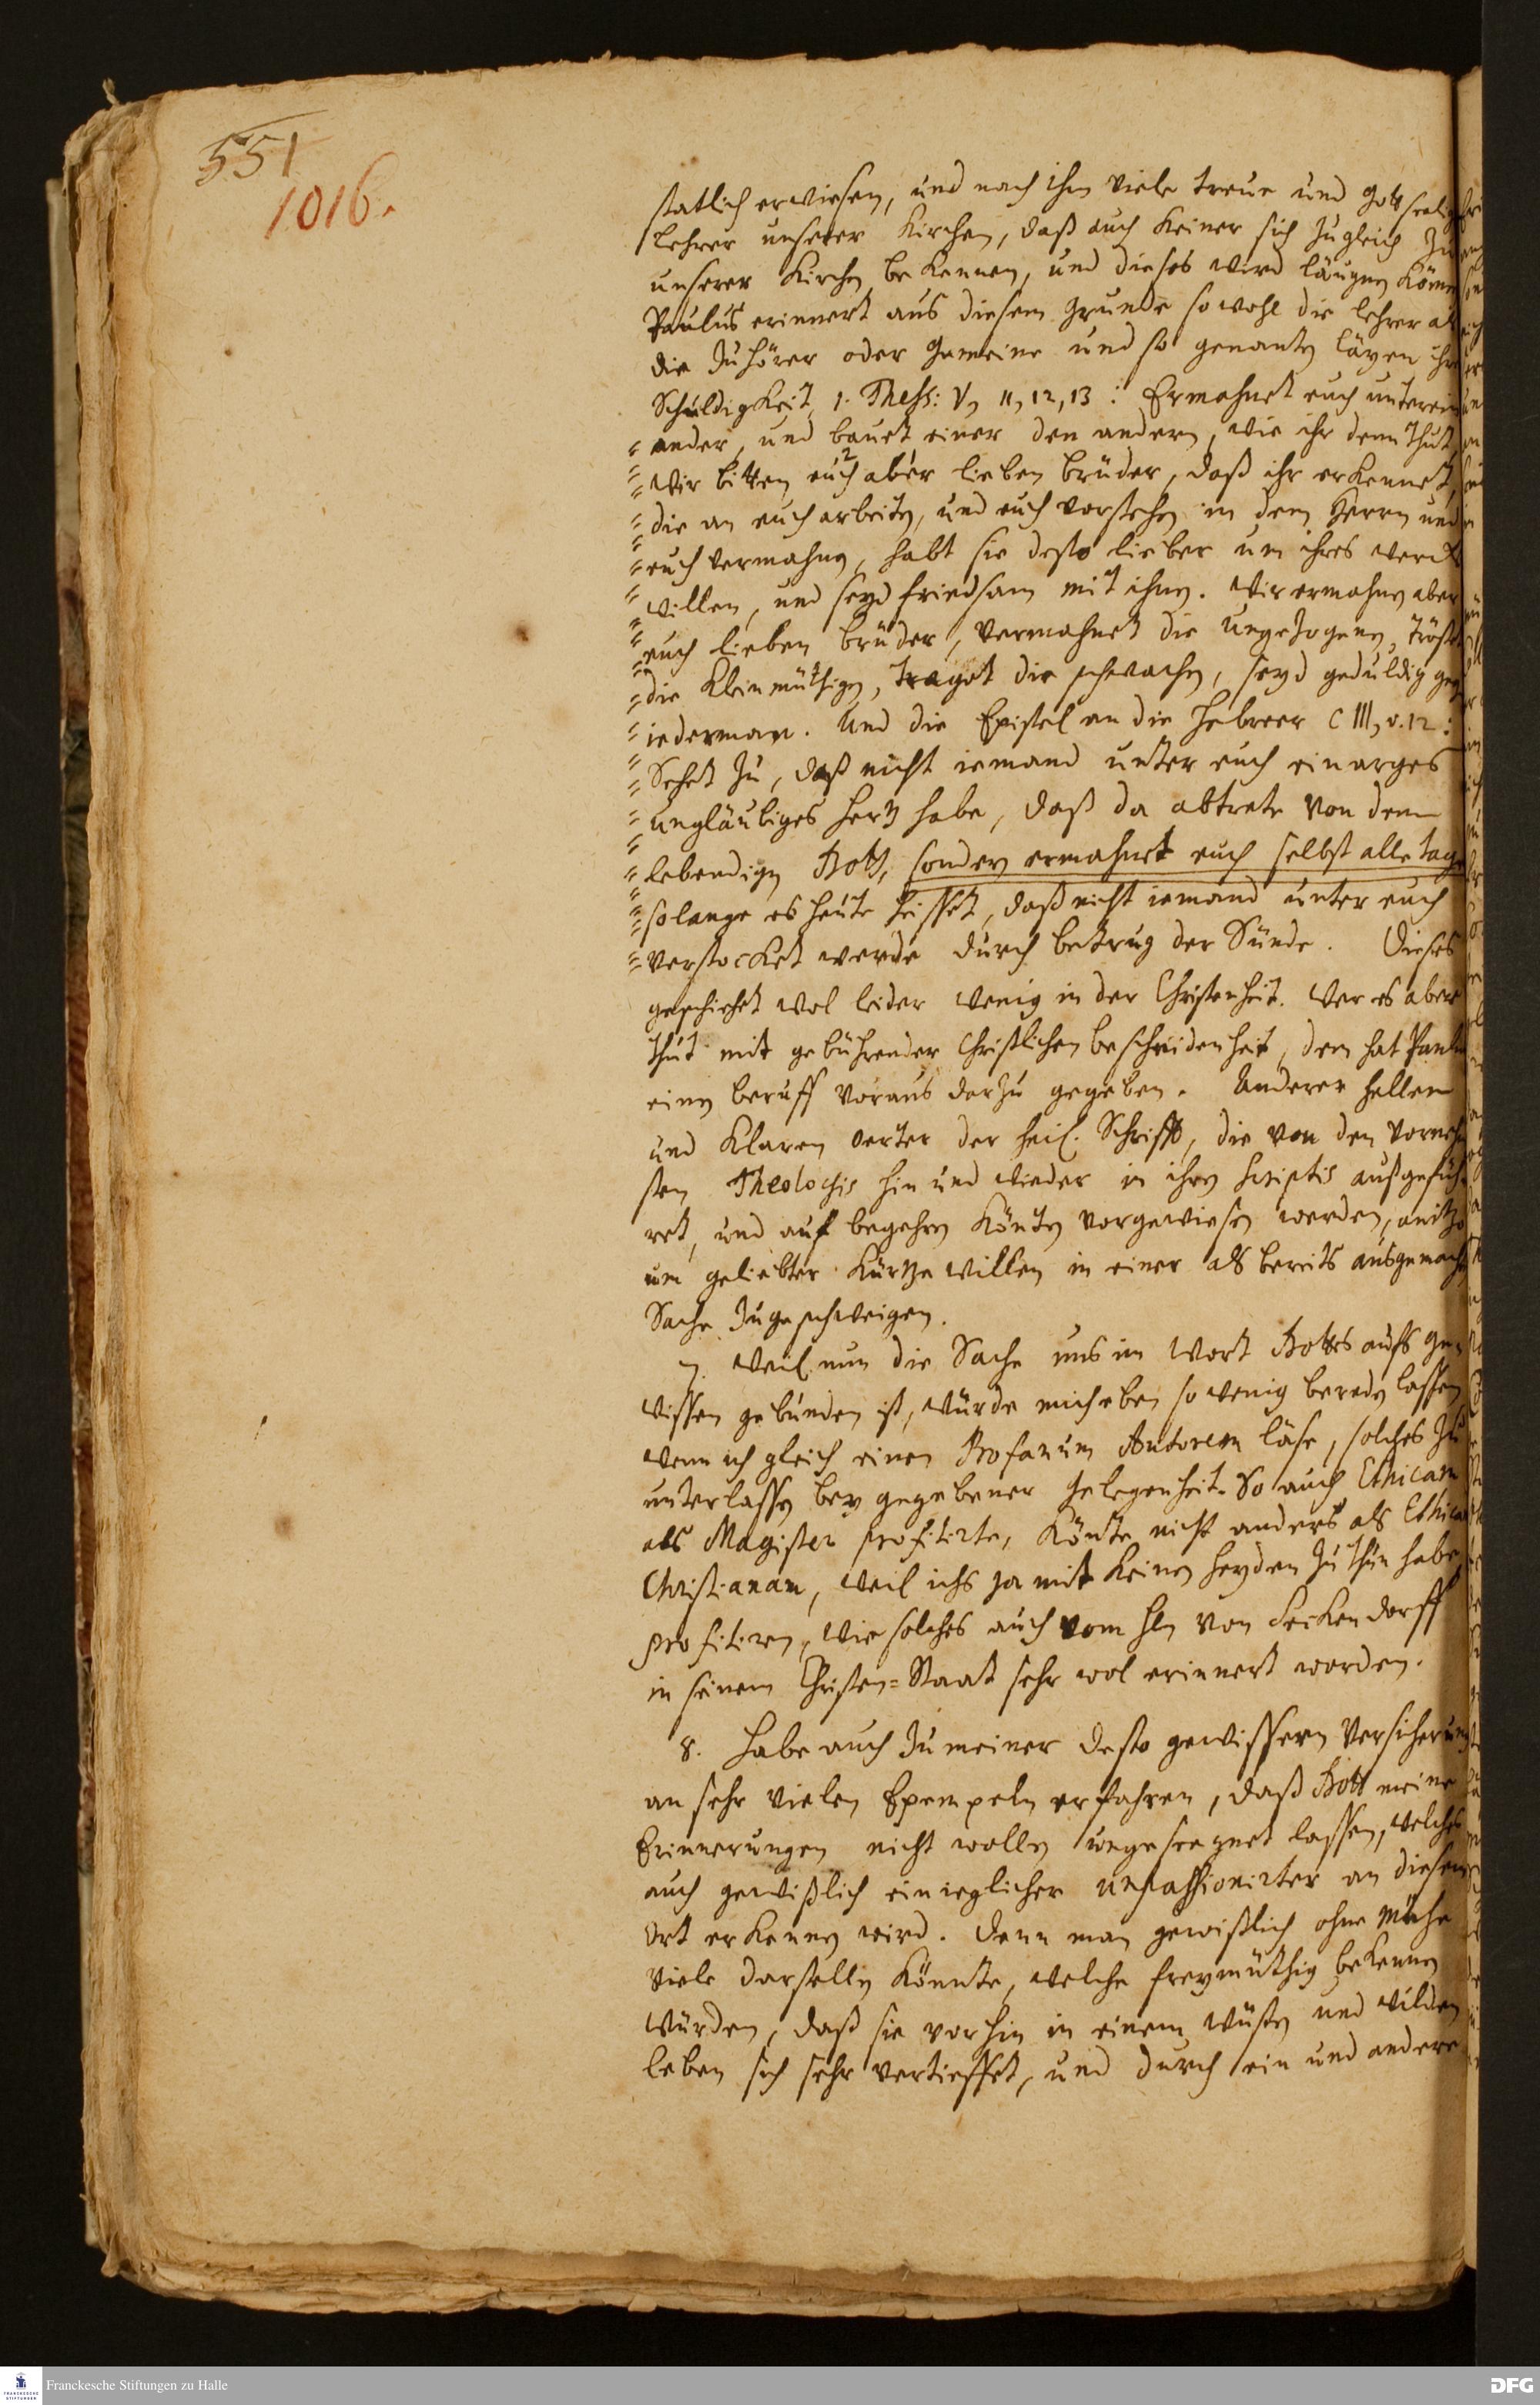 551
1016.
statlich erwiesen, und nach ihm viele treue und Gottseelig
Lehrer unserer Kirchen, daß auch keiner sich zugleich zu
unserer Kirchen bekennen, und dieses wird läugnen könn
Paulus erinnert aus diesem Grunde sowohl die Lehrer al
die Zuhörer oder Gemeine und so genanten Läyen ihr
Schuldigkeit, 1. Thess: V, 11, 12, 13: Ermahnet euch unterein
ander, und bauet einer den andern, wie ihr denn thut,
Wir bitten euch aber lieben Brüder, daß ihr erkennet,
die an euch arbeiten, und euch vorstehen in dem Herrn und
euch vermahnen, habt sie desto lieber um ihres werck
willen, und seyd friedsam mit ihnen. Wir ermahnen aber
euch lieben Brüder, vermahnet die Ungezogenen, tröst
die Kleinmüthigen, traget die schwachen, seyd geduldig geg
iederman. Und die Epistel an die Hebreer C III, v. 12:
Sehet zu, daß nicht iemand unter euch ein arges
ungläubiges Hertz habe, daß da abtrete von dem
lebendigen Gott, sondern ermahnet euch selbst alle tag
solange es heute heisset, daß nicht iemand unter euch
verstocket werde durch betrug der Sünde. Dieses
geschiehet wol leider wenig in der Christenheit. Wer es aber
thut mit gebührender Christlichen bescheidenheit, dem hat Paulu
einen beruff voraus darzu gegeben. Anderer hellen
und klaren Oerter der heil. Schrifft, die von den Vorneh
sten Theologis hin und wieder in ihren scriptis außgefüh
ret, und auf begehren könten vorgewiesen werden, anitzo
um geliebter Kürtze willen in einer als bereits ausgemacht
Sache zugeschweigen.
7. Weil nun die Sache uns im Wort Gottes aufs Ge
wissen gebunden ist, würde mich eben so wenig bereden lassen
wenn ich gleich einen Profanum Autorem läse, solches zu
unterlassen bey gegebener Gelegenheit. So auch Ethicam
als Magister profitirte, könte nicht anders als Ethica
Christianam, weil ichs ja mit keinen Heyden zu thun habe,
profitiren, wie solches auch vom Hln von Seckendorff
in seinem Christen=Staat sehr wol erinnert worden.
8. Habe auch zu meiner desto gewissern Versicherung
an sehr vielen Exempeln erfahren, daß Gott meine
Erinnerungen nicht wollen ungeseegnet lassen, welches
auch gewißlich ein ieglicher unpassionirter an diesem
Ort erkennen wird. Denn man gewißlich ohne Mühe
viele darstellen könnte, welche freymüthig bekennen
würden, daß sie vorhin in einem wüsten und wilden
leben sich sehr vertieffet, und durch ein und andere
Franckesche Stiftungen zu Halle
DFG